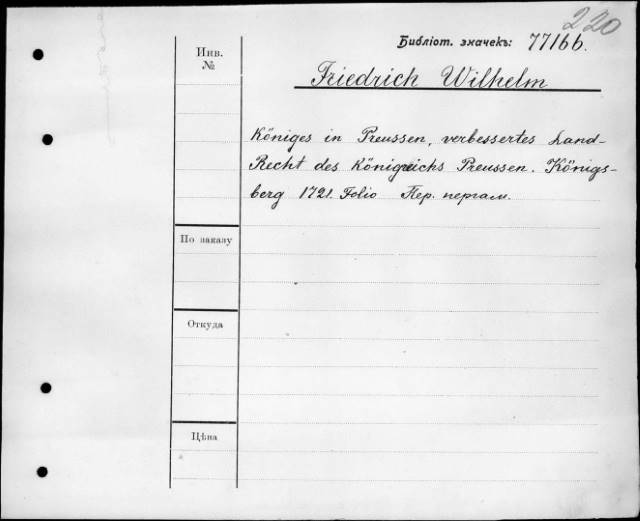 220
Библіот. значекъ: 77166.
Инв.
№
Friedrich Wilhelm
Königes in Preussen, verbessertes Land-
Recht des Königreichs Preussen. Königs-
berg 1721. Folio Пер. пергам.
По заказу
Откуда
Цѣна